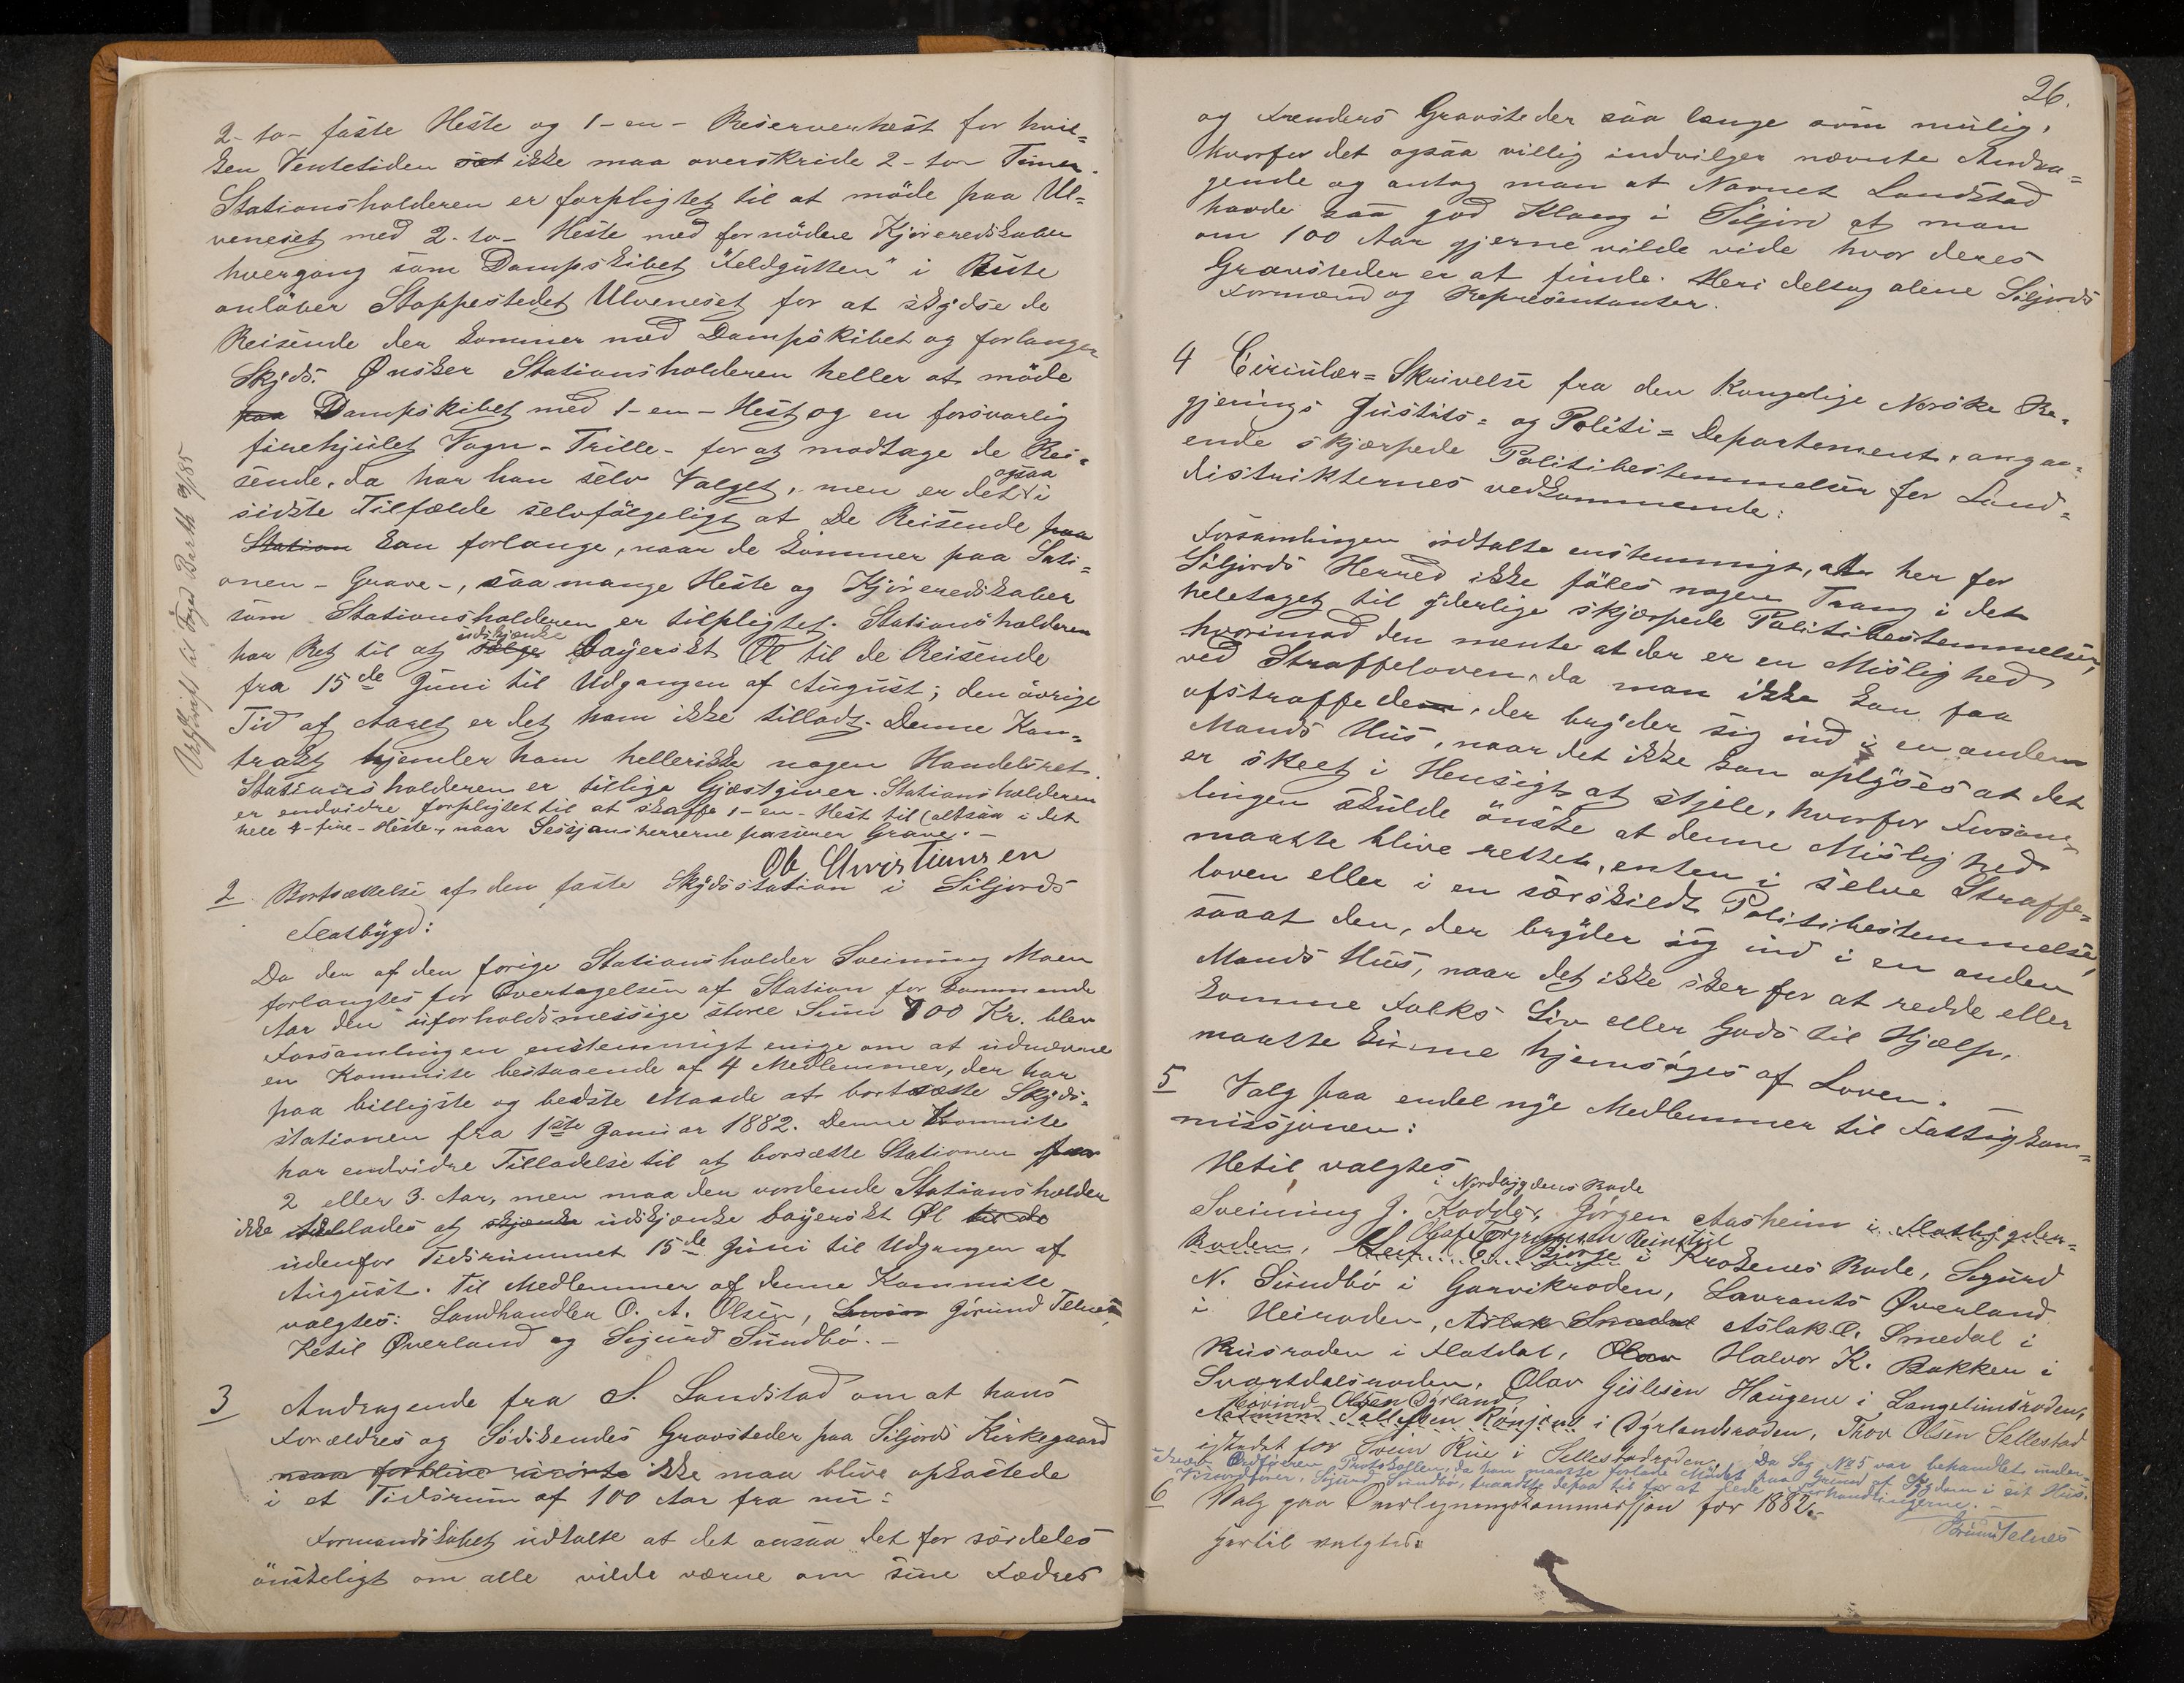 2-to- faste Heste og 1-en- Reserverhest for hvil=
ken Ventetiden sæt ikke maa overskride 2-to- Timer.
Stationsholderen er forpligtet til at möde paa Ul=
veneset med 2-to- Heste med fornödne Kjöreredskaber
hvergang som Dampskibet "Feldgutten" i Rute
anlöber Stoppestedet Ulveneset for at skydse de
Reisende der kommer med Dampskibet og forlanger
Skyds. Ønsker Stationsholderen heller at möde
paa Dampskibet med 1-en-Hest og en forsvarlig
firehjulet Vogn - Trille - for at modtage de Rei=
sende, da har han selv Valget, men er det ogsaa i
sidste Tilfælde selvfölgeligt at De Reisende paa
Station kan forlange, naar de kommer paa Stati=
onen - Grave -, saa mange Heste og Kjöreredskaber
som Stationsholderen er tilpligtet. Stationsholderen
har Ret til at sælge udskjænke bayerskt Øl til de Reisende
fra 15de Juni til Udgangen af August; den övrige
Tid af Aaret er det ham ikke tilladt. Denne Kon=
trakt hjemler ham hellerikke nogen Handelsret.
Stationsholderen er tillige Gjæstgiver. Stationsholderen
er endvidre forpligtet til at skaffe 1-en-Hest til (altsaa i det
hele 4-fire-Heste, naar Sessjonsherrerne passerer Grave. -
Ob Christiansen
Udskrift til Fogd Barth 9/85
2 Bortsættelse af den faste Skydsstation i Siljords
Flatbygd:
Da der af den forige Stationsholder Sveinung Moen
forlangtes for Overtagelsen af Station for kommende
Aar den uforholdsmessige store Sum 800 Kr. blev
Forsamlingen enstemmigt enige om at udnævne
en Kommite bestaaende af 4 Medlemmer, der har
paa billigste og bedste Maade at bortsætte Skyds=
stationen fra 1ste Januar 1882. Denne Kommite
har endvidre Tilladelse til at borsætte Stationen paa
2 eller 3 Aar, men maa den vordende Stationsholder
ikke tillades at skjænke udskjænke bayerskt Øl til de
udenfor Tidsrummet 15de Juni til Udgangen af
August. Til Medlemmer af denne Kommite
valgtes: Landhandler O. A. Olsen, Jörund Telnes,
Ketil Øverland og Sigurd Sundbö. -
3 Andragende fra S. Landstad om at hans
Forældres og Södskendes Gravsteder paa Siljords Kirkegaard
maa forblive urörte ikke maa blive opkastede
i et Tidsrum af 100 Aar fra nu:
Formandskabet udtalte at det ansaa det for særdeles
önskeligt om alle vilde værne om sine Fædres
26.
og Frænders Gravsteder saa længe som mulig,
hvorfor det ogsaa villig indvilger nævnte Andra=
gende og antog man at Navnet Landstad
havde saa god Klang i Siljord at man
om 100 Aar gjerne vilde vide hvor deres
Gravsteder er at finde. Heri deltog alene Siljords
Formænd og Repræsentanter.
4 Circulær=Skrivelse fra den Kongelige Norske Re=
gjerings Justits= og Politi=Departement, angaa=
ende skjærpede Politibestemmelser for Land=
distrikternes vedkommende:
Forsamlingen udtalte enstemmigt, at her for
Siljords Herred ikke föles nogen Trang i det
heletaget til yderlige skjærpede Politibestemmelser,
hvorimod den mente at der er en Mislighed
ved Straffeloven, da man ikke kan faa
afstraffe den, der bryder sig ind i en anden
Mands Hus, naar det ikke kan oplyses at det
er skeet i Hensigt at stjele, hvorfor Forsam=
lingen skulde önske at denne Mislighed
maatte blive rettet, enten i selve Straffe=
loven eller i en særskildt Politibestemmelse,
saaat den, der bryder sig ind i en anden
Mands Hus, naar det ikke sker for at redde eller
komme Folks Liv eller Gods til Hjælp,
maatte kunne hjemsöges af Loven. -
5 Valg paa endel nye Medlemmer til Fattigkom=
missjonen:
Hetil valgtes
i Nordbygdens Rode
Sveinung J. Kodder, Jörgen Aasheim i Flatbygden=
Roden, Olaf Torgrimsen Reinskul
Leif Bjerge i Krokenes Rode, Sigurd
N. Sundbö i Garvikroden, Lavrants Øverland
i Heiroden, Aslak Smedal Aslak O. Smedal i
Rusroden i Flatdal, Olav Halvor K. Bakken i
Svartdalsroden, Olav Gislesen Haugene i Langelimsroden,
Eivind Olsen Dyrland
Aasmund Tallefsen Ronjom i Dyrlandsroden, Thor Olsen Sellestad
istedet for Svein Rui i Sellestadroden. Da Sag No 5 var behandlet under=
skrev Ordföreren Protokollen, da han maatte forlade Mödet paa Grund af Sygdom i sit Hus.
Viceordförer, Sigurd Sundbö, traadte depaa til for at lede Forhandlingerne. -
Jörund Telnes
6 Valg paa Overligningskommissjon for 1882.
Hertil valgtes: